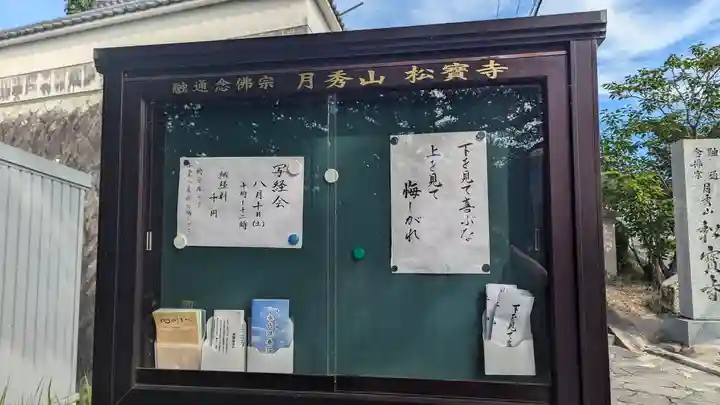 融通念佛宗 月秀山 松寶寺
写経会
八月十日(土)
十時〜十二時
納経料
千円
下を見て喜ぶな
上を見て
悔しがれ
下を見て
融通
念佛宗
月秀山
寶寺